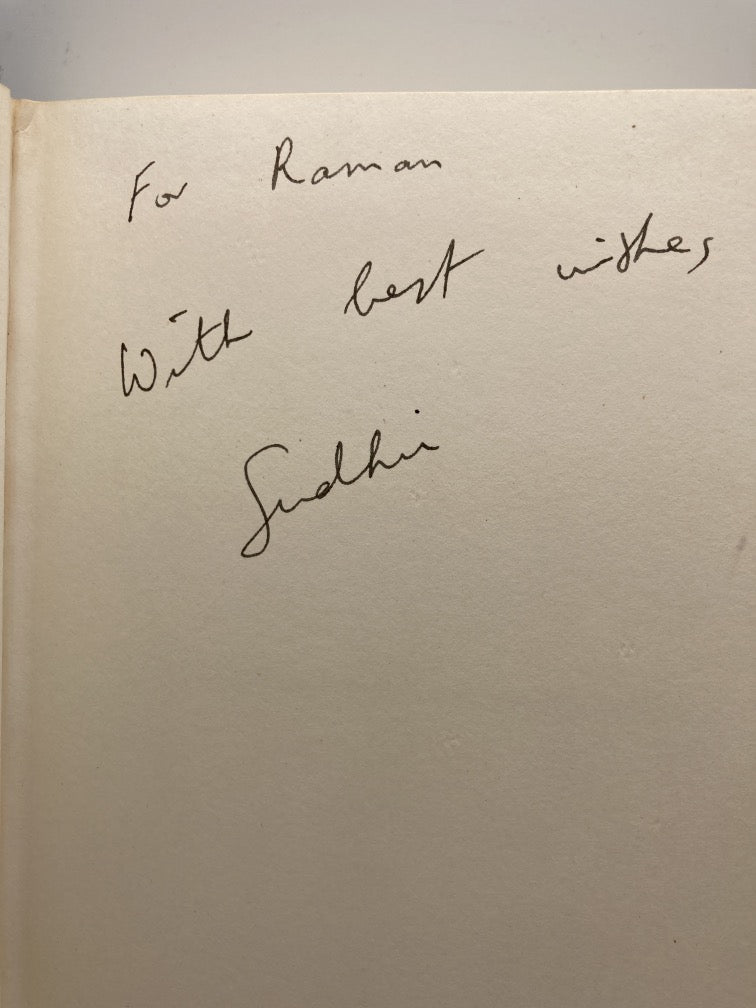 For Raman
With best wishes
Sudhir